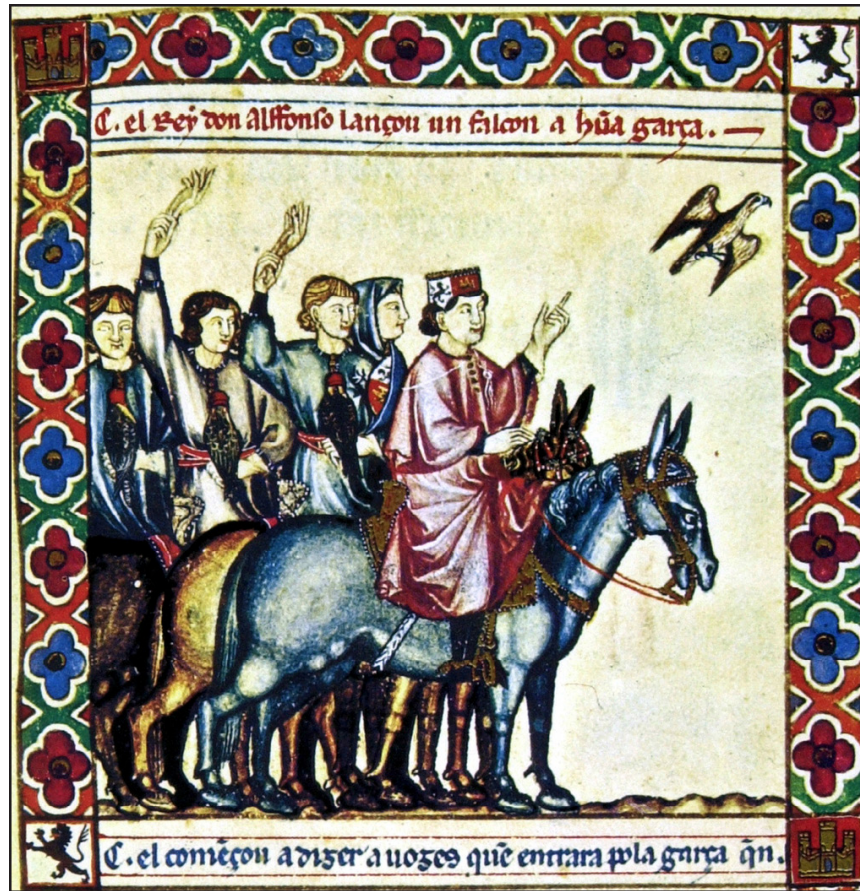 C. el Rey don Alffonso lançou un falcon a hũa garça.
C. el comẽçou a dizer a uozes quẽ entrara pola garça q̃n.